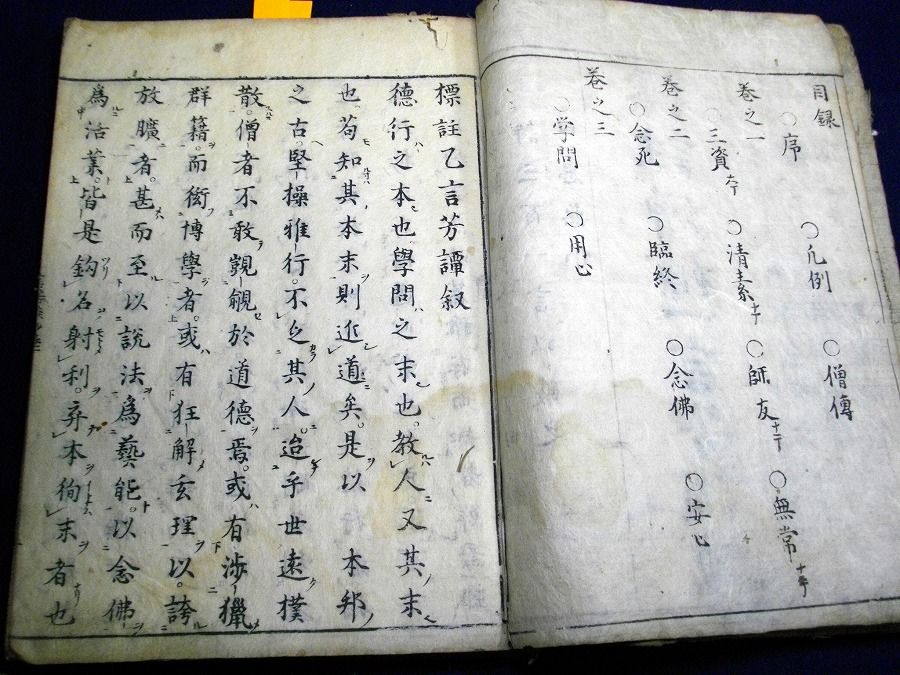 目録
○序 ○凡例 ○僧傳
巻之一
○三資 ○清素 ○師友 ○無常
巻之二
○念死 ○臨終 ○念佛 ○安心
巻之三
○学問 ○用心
標註乙言芳譚叙
德行之本也學問之末也教人又其末
也苟知其本末則近道矣是以 本邦
之古堅操雅行不乏其人迨乎世遠樸
散僧者不敢覬覦於道德焉或有渉獵
群籍而衒博學者或有狂解玄理以誇
放曠者甚而至以説法為藝能以念佛
為活業皆是鈎名射利弃本徇末者也